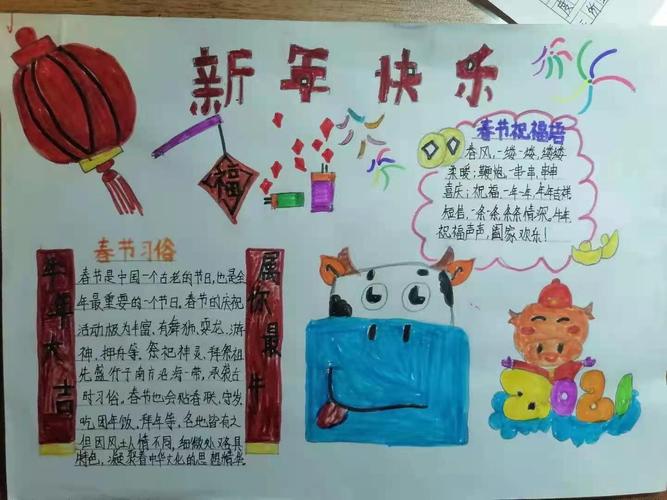 新年快乐
福
春节祝福语
春风,一缕一缕,缕缕
柔暖;鞭炮一串一串,串串
喜庆;祝福,一年一年,年年吉祥
短信,一条一条,条条情深。牛年
祝福声声,阖家欢乐!
春节习俗
牛年大吉
春节是中国一个古老的节日,也是全
年最重要的一个节日。春节的庆祝
活动极为丰富,有舞狮、耍龙、游
神、押舟等,祭祀神灵、拜祭祖
先盛行于南方沿海一带,承袭古
时习俗,春节也会贴春联、守岁、
吃团年饭、拜年等,各地皆有之
但因风土人情不同,细微处各具
特色,凝聚着中华文化的思想情
属你最牛
2021